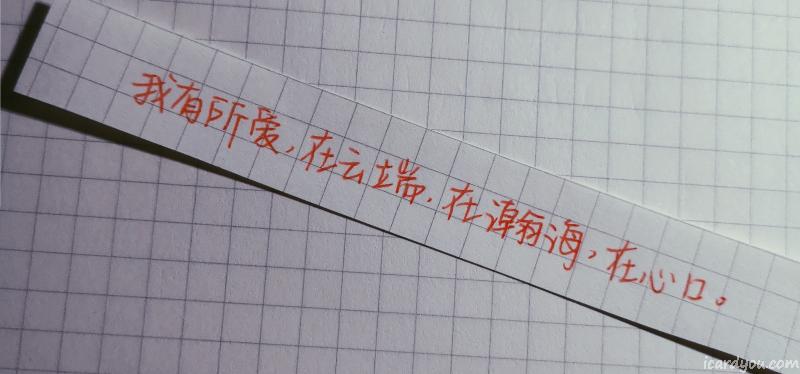 我有所爱,在云端,在瀚海,在心口。
icardyou.com